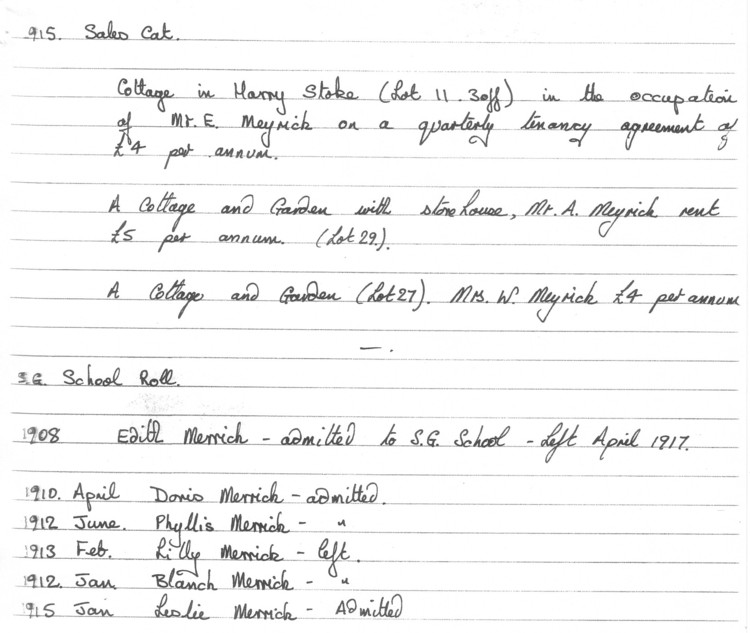 915. Sales Cat.
Cottage in Harry Stoke (Lot 11. 3off) in the occupation
of Mr. E. Meyrick on a quarterly tenancy agreement of
£4 per annum.
A Cottage and Garden with storehouse, Mr. A. Meyrick rent
£5 per annum. (Lot 29).
A Cottage and Garden (Lot 27). Mrs. W. Meyrick £4 per annum
— .
S.G. School Roll.
1908 Edith Merrick - admitted to S.G. School - Left April 1917.
1910. April Doris Merrick - admitted.
1912 June. Phyllis Merrick - "
1913 Feb. Lilly Merrick - left.
1912. Jan. Blanch Merrick - "
1915 Jan Leslie Merrick - Admitted